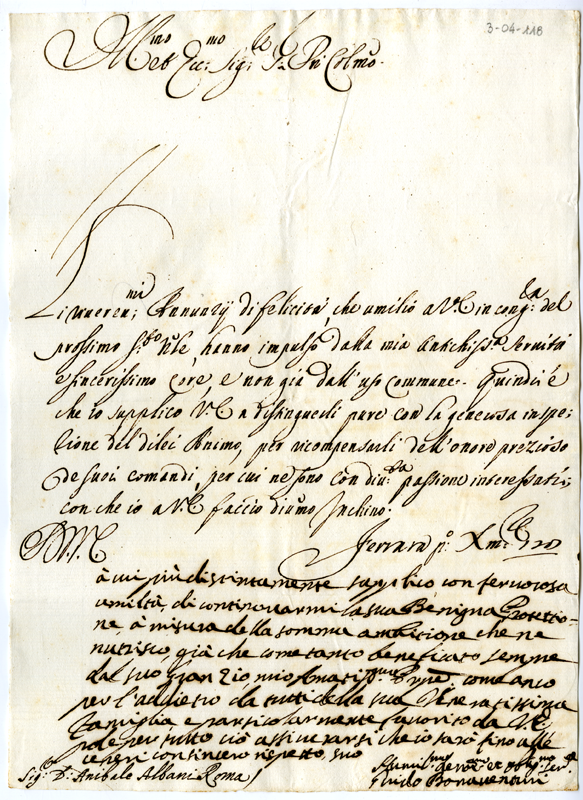 3-04-118
Ill.mo et Ecc.mo Sig.r Pri Col.mo
I riveren.mi Annunzij di felicità che umilio a V.E. in cong.ra del
prossimo S.to N.le hanno impulso dalla mia Antichiss.a servitù
e sincerissimo Core, e non già dall'uso commune. Quindi è
che io supplico V.E. a distinguerli pure con la generosa inspe:
zione del dilei Animo, per ricompensarli dell'onore prezioso
de suoi comandi, per cui ne sono con diu.sa passione interessati;
con che io a V.E. faccio diu.mo Inchino.
D. V. E.
Ferrara p.o Xm.re
à cui più distintamente supplico con fervorosa
umiltà, di continovarmi la sua Benigna Protettio=
ne, à misura della somma ambitione che ne
nutrisco, già che come tanto beneficato sempre
dal suo gran Zio mio come anco
per l'addietro da tutti della sua Veneratissima
famiglia e particolarmente favorito da V.E.
pole per tutto ciò assicurarsi che io sarò fino alle
ceneri con sincero rispetto suo
Sig.r D. Anibale Albani Roma
Guido Bonaventuri